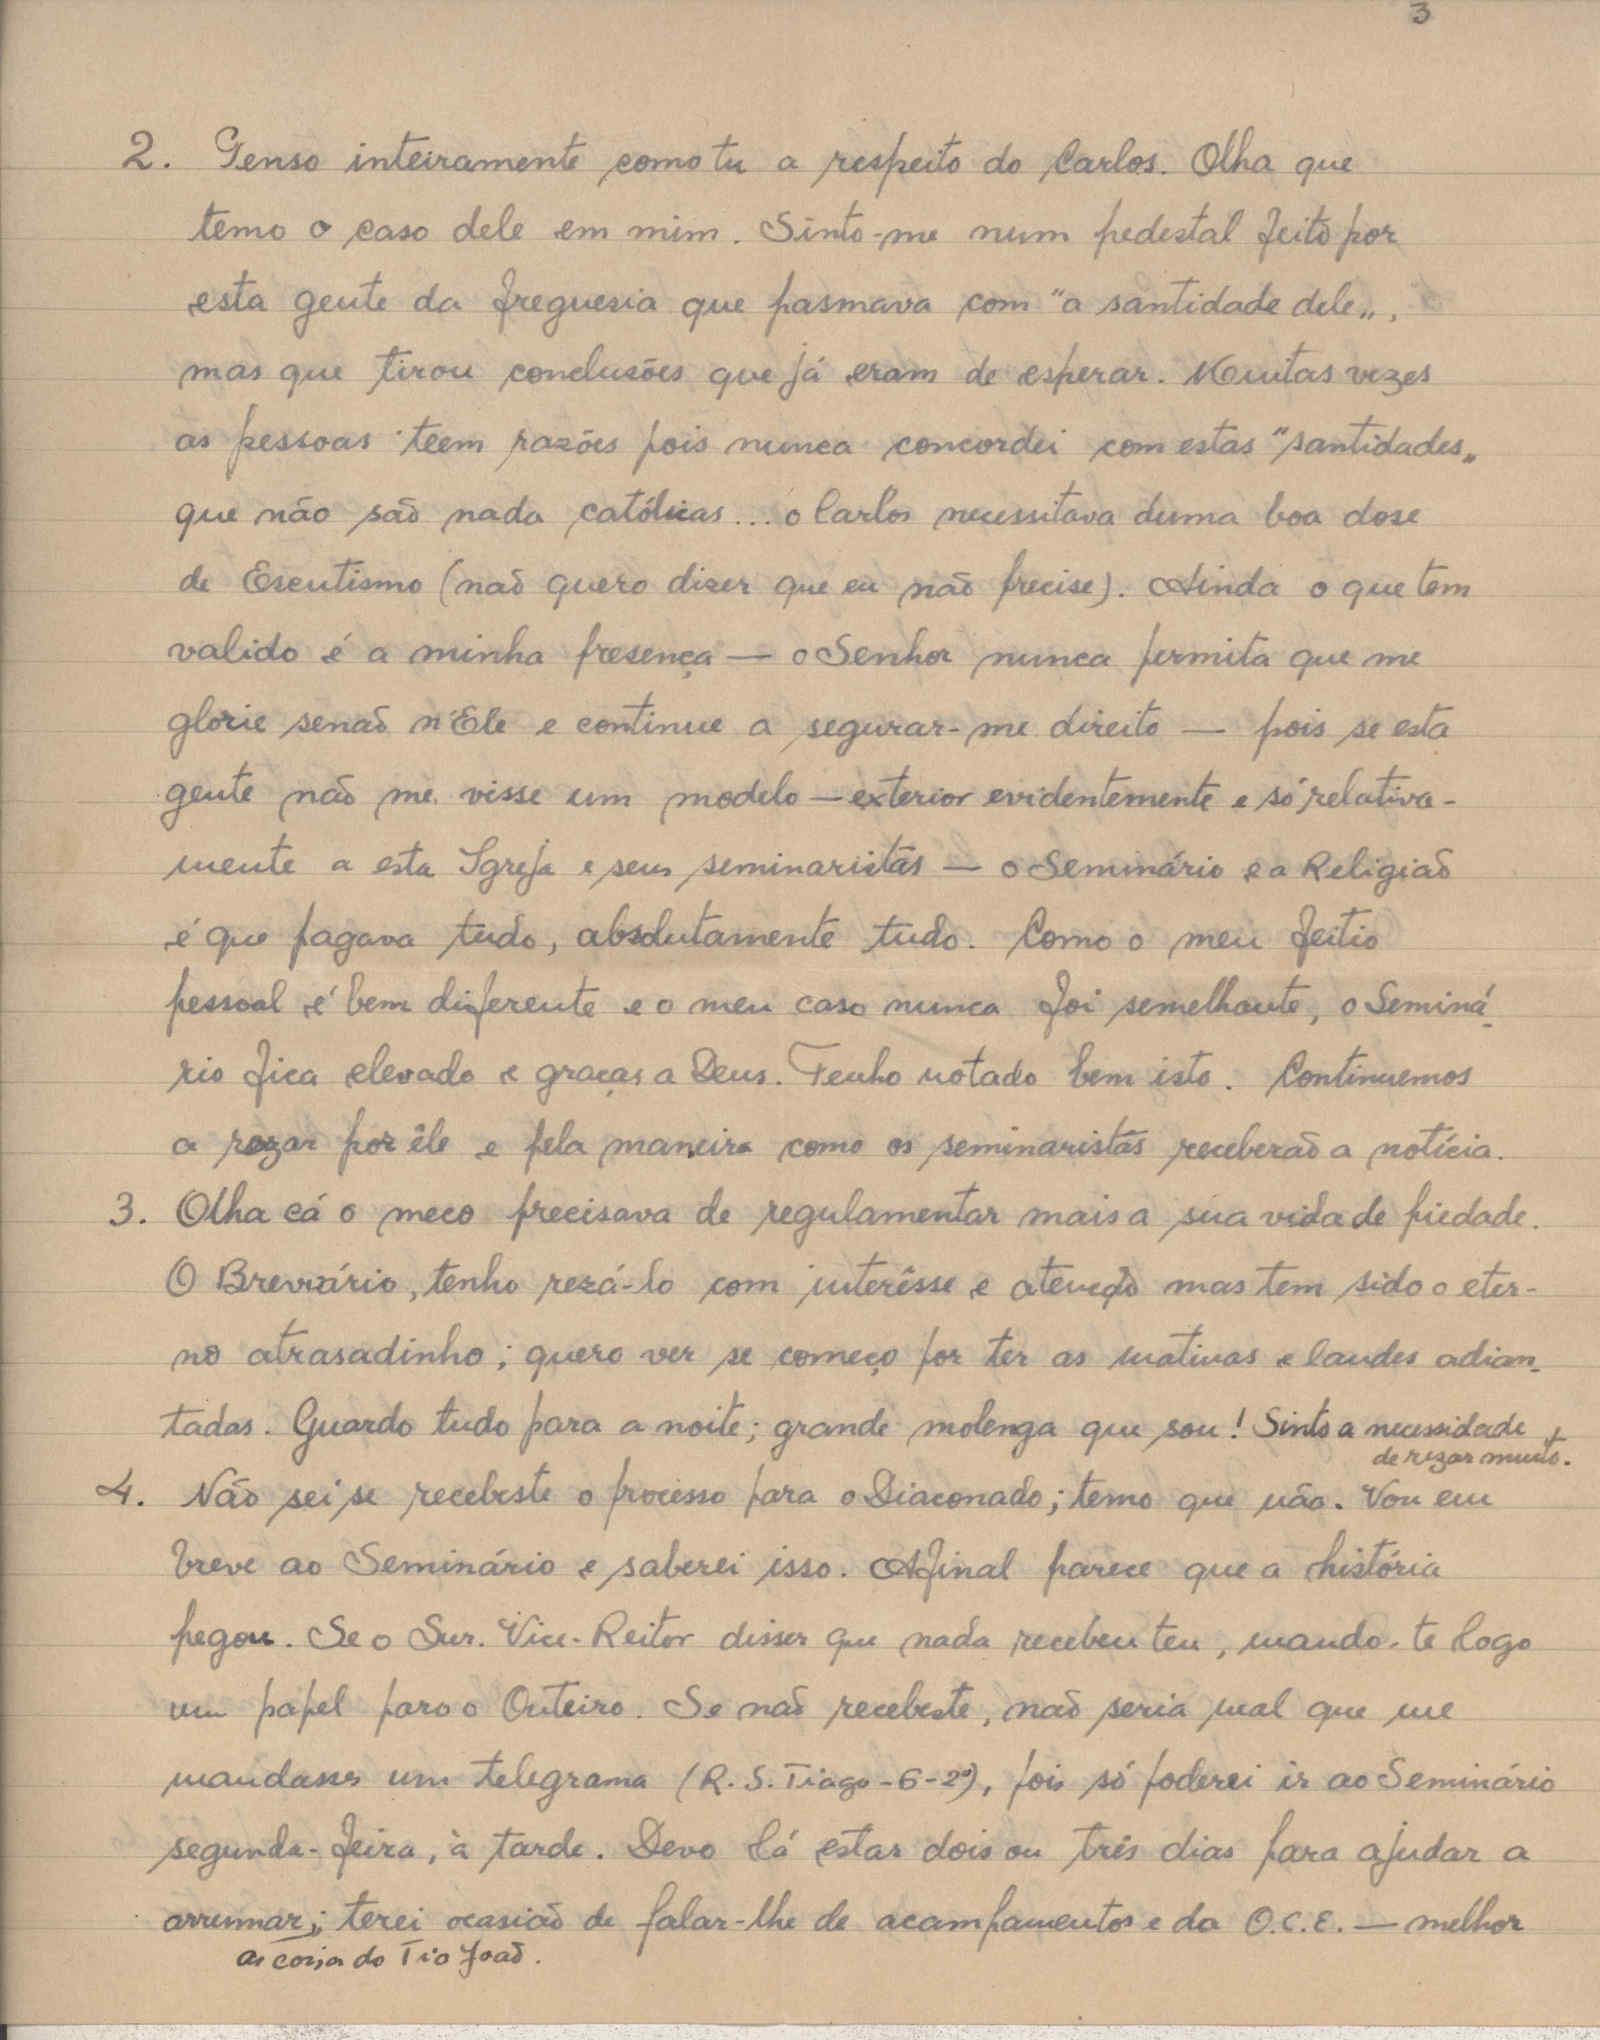 3
2. Penso inteiramente como tu a respeito do Carlos. Olha que
temo o caso dele em mim. Sinto-me num pedestal feito por
esta gente da freguesia que pasmava com "a santidade dele„,
mas que tirou conclusões que já eram de esperar. Muitas vezes
as pessoas teem razões pois nunca concordei com estas "santidades„
que não são nada católicas... o Carlos necessitava duma boa dose
de Escutismo (naõ quero dizer que eu naõ precise). Ainda o que tem
valido é a minha presença — o Senhor nunca permita que me
glorie senaõ n'Ele e continue a segurar-me direito — pois se esta
gente naõ me visse um modelo — exterior evidentemente e só relativa-
mente a esta Igreja e seus seminaristas — o Seminário e a Religiaõ
é que pagava tudo, absolutamente tudo. Como o meu feitio
pessoal é bem diferente e o meu caso nunca foi semelhante, o Seminá-
rio fica elevado e graças a Deus. Tenho notado bem isto. Continuemos
a rezar por êle e pela maneira como os seminaristas receberaõ a notícia.
3. Olha cá o meco precisava de regulamentar mais a sua vida de piedade.
O Breviário, tenho rezá-lo com interêsse e atenção mas tem sido o eter-
no atrasadinho; quero ver se começo por ter as matinas e laudes adian-
tadas. Guardo tudo para a noite; grande molenga que sou! Sinto a necessidade
de rezar muito.
4. Não sei se recebeste o processo para o Diaconado; temo que não. Vou em
breve ao Seminário e saberei isso. Afinal parece que a história
pegou. Se o Snr. Vice-Reitor disser que nada recebeu teu, mando-te logo
um papel para o Outeiro. Se naõ recebeste, naõ seria mal que me
mandasses um telegrama (R. S. Tiago - 6 - 2º), pois só poderei ir ao Seminário
segunda-feira, à tarde. Devo lá estar dois ou três dias para ajudar a
arrumar; terei ocasiaõ de falar-lhe de acampamentos e da O.C.E. — melhor
as coisas do Tio Joaõ.